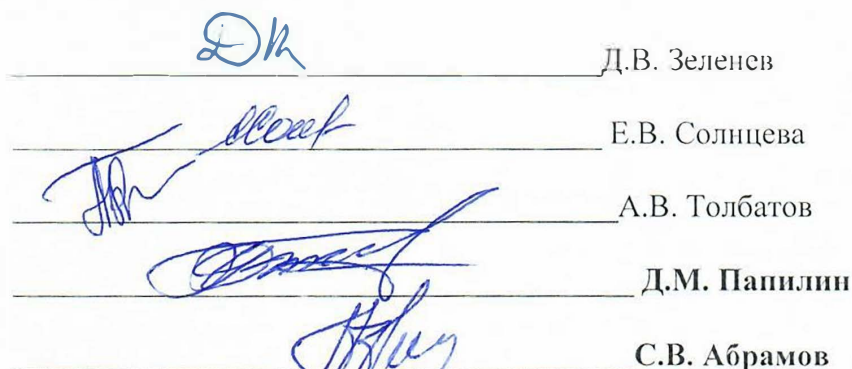 Д.В. Зеленев
Е.В. Солнцева
А.В. Толбатов
Д.М. Папилин
С.В. Абрамов